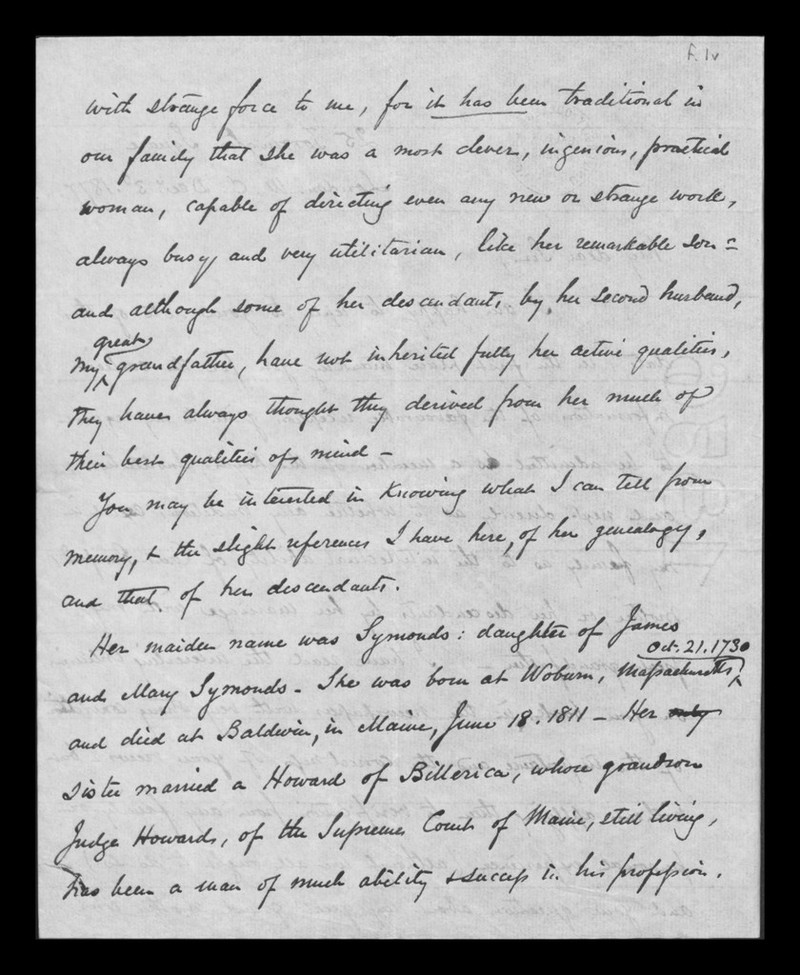 f. 1v
with strange force to me, for it has been traditional in
our family that she was a most clever, ingenious, practical
woman, capable of directing even any new or strange work,
always busy, and very utilitarian, like her remarkable son =
and although some of her descendants, by her second husband,
great
my ^ grandfather, have not inherited fully her active qualities,
they have always thought they derived from her much of
their best qualities of mind -
You may be interested in knowing what I can tell from
memory, & the slight references I have here, of her genealogy,
and that of her descendants.
Her maiden name was Symonds: daughter of James
Oct. 21. 1730
and Mary Symonds - She was born at Woburn, Massachusetts, ^
and died at Baldwin, in Maine, June 18. 1811 - Her only
sister married a Howard of Billerica, whose grandson
Judge Howard, of the Supreme Court of Maine, still living,
has been a man of much ability & success in his profession.